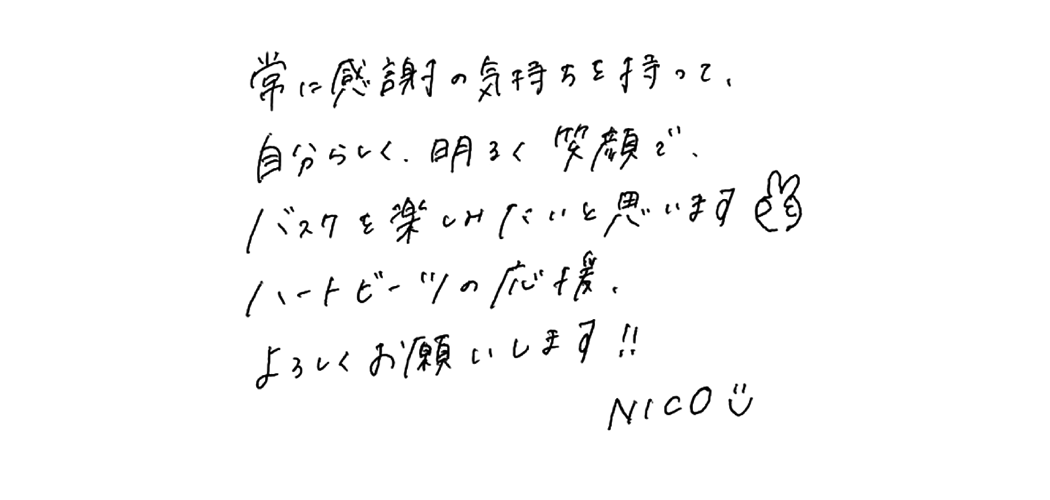 常に感謝の気持ちを持って、
自分らしく、明るく笑顔で、
バスケを楽しみたいと思います
ハートビーツの応援、
よろしくお願いします!!
NICO